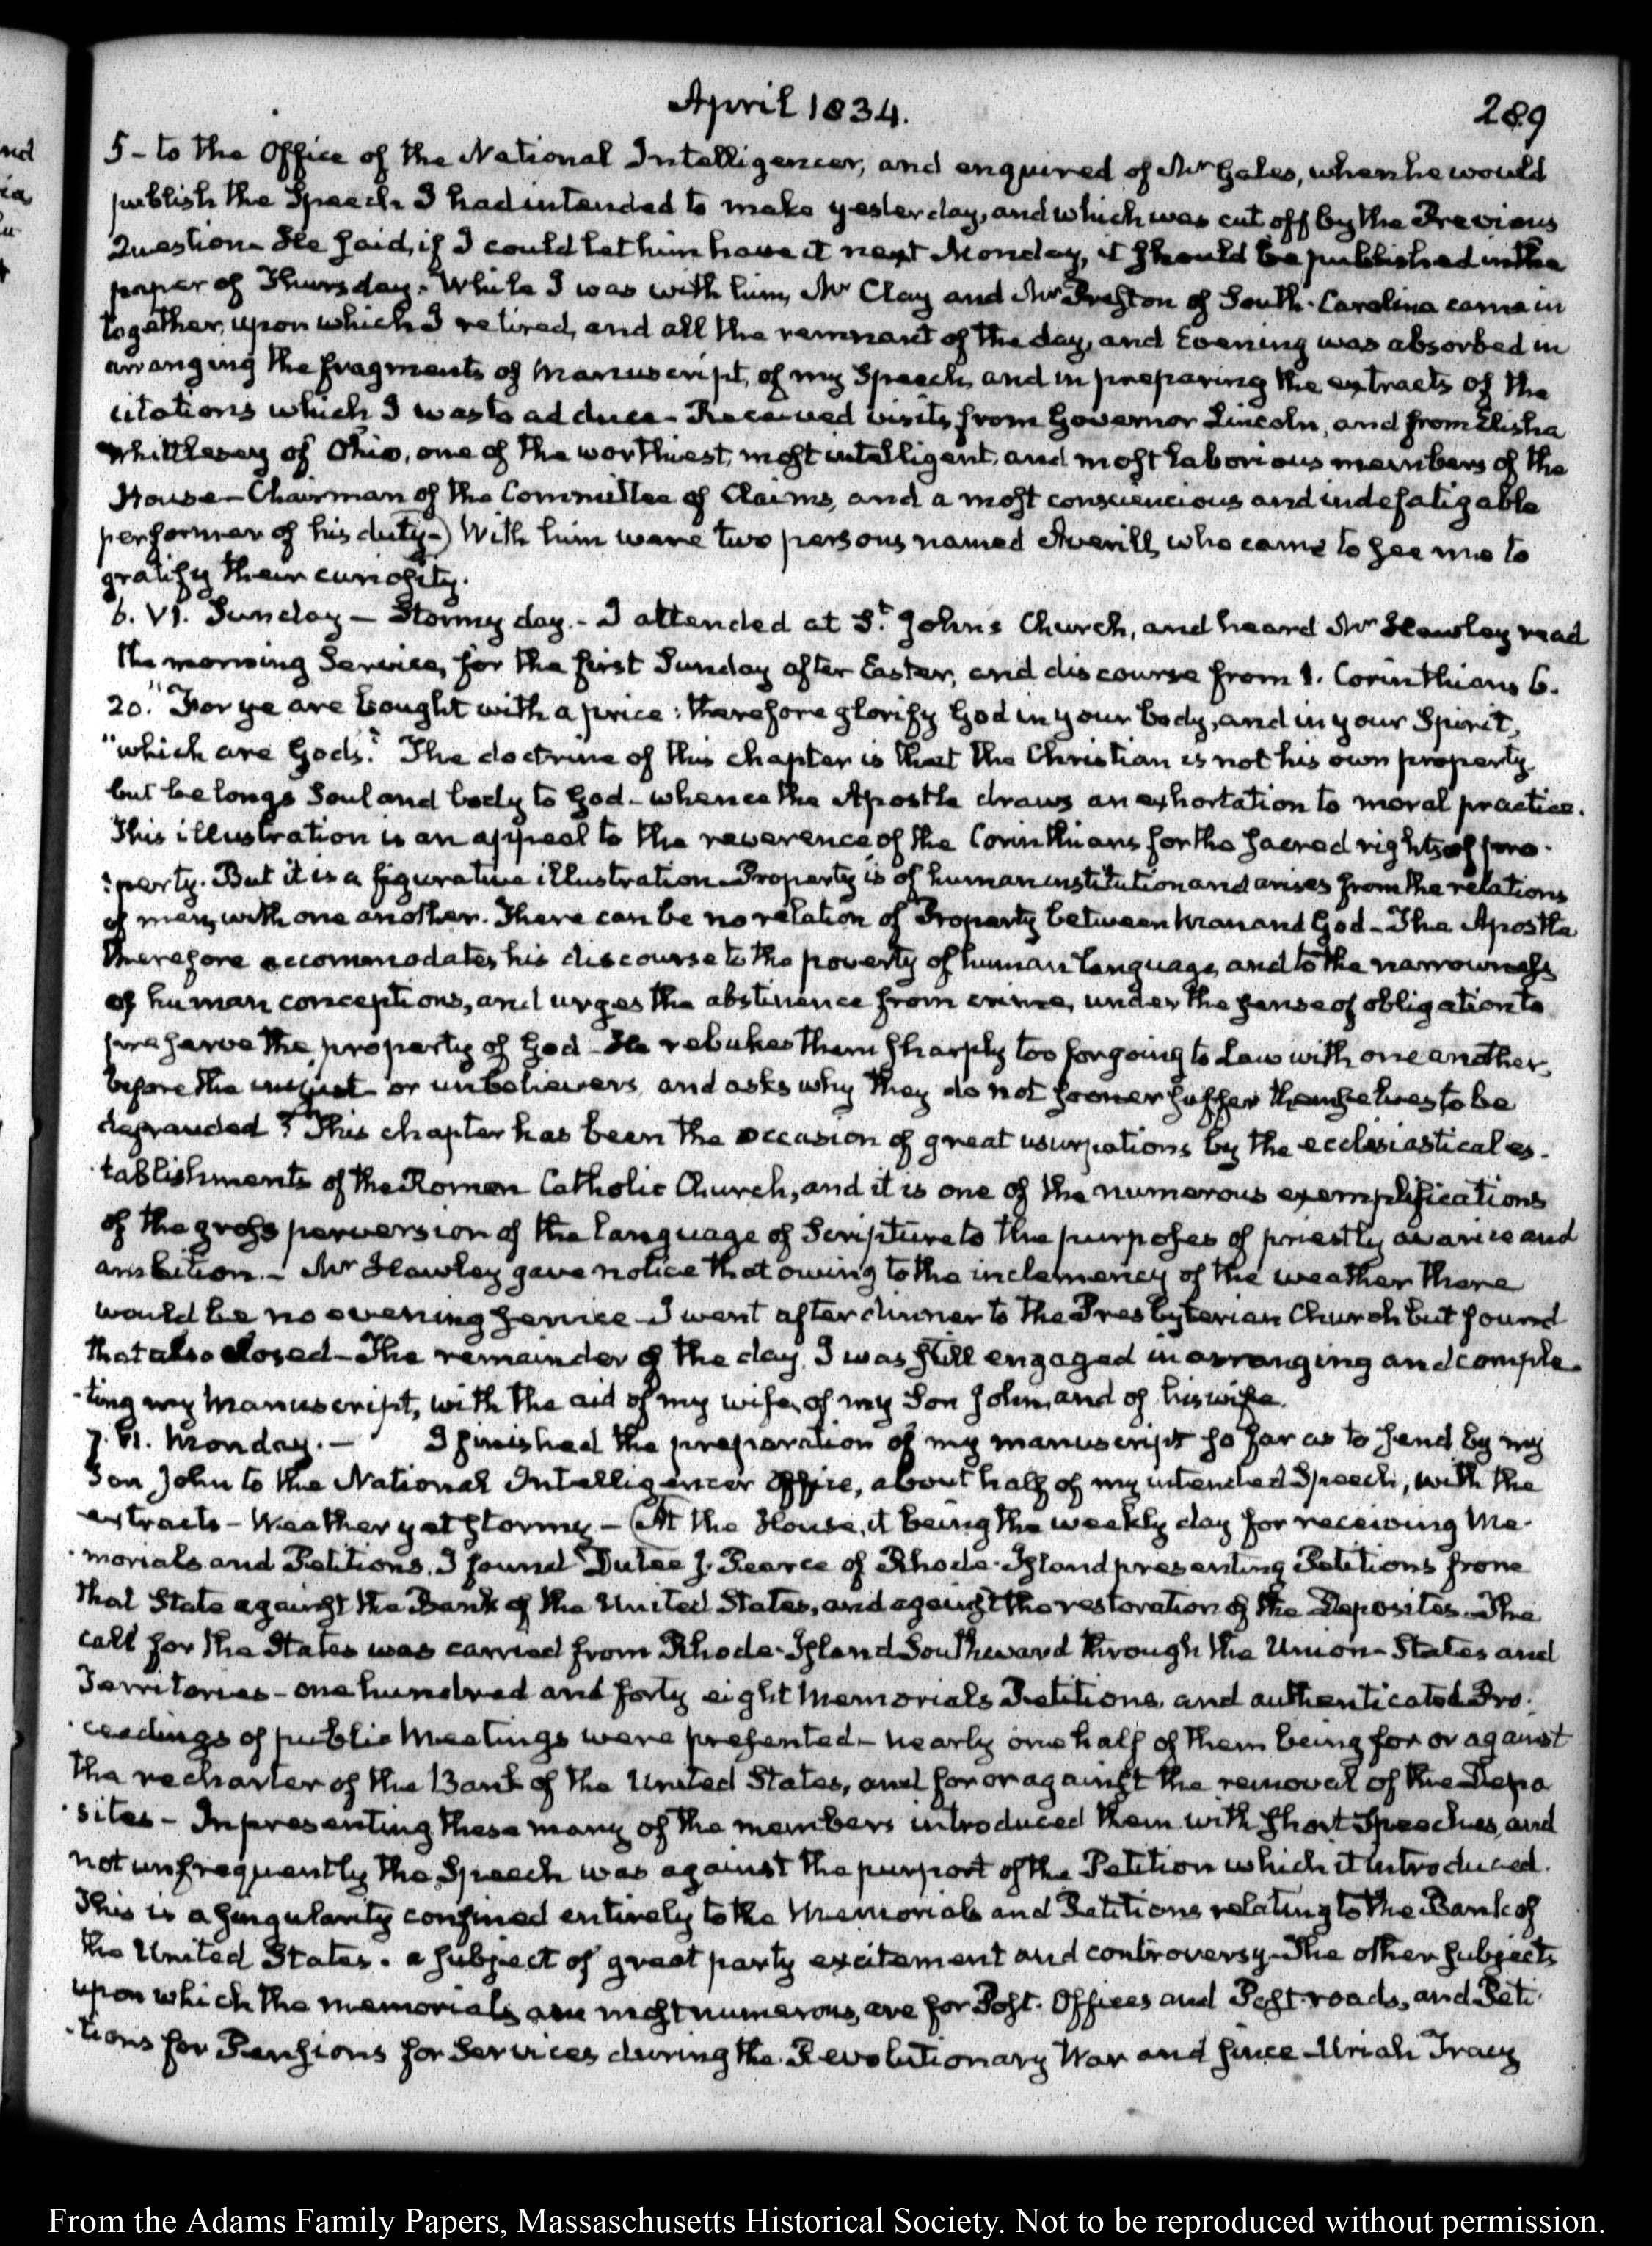 April 1834.
289
5 - to the Office of the National Intelligencer, and enquired of Mr Gales, when he would
publish the Speech I had intended to make yesterday, and which was cut off by the Previous
Question - He said, if I could let him have it next Monday, it should be published in the
paper of Thursday. While I was with him, Mr Clay and Mr Preston of South-Carolina came in
together, upon which I retired, and all the remnant of the day, and Evening was absorbed in
arranging the fragments of Manuscript, of my Speech, and in preparing the extracts of the
citations which I was to adduce - Received visits from Governor Lincoln, and from Elisha
Whittlesey of Ohio, one of the worthiest, most intelligent, and most laborious members of the
House - Chairman of the Committee of Claims, and a most consciencious and indefatigable
performer of his duty -) With him were two persons named Averill, who came to see me to
gratify their curiosity.
6. VI. Sunday - Stormy day. - I attended at St. Johns Church, and heard Mr Hawley read
the morning Service, for the first Sunday after Easter, and discourse from 1. Corinthians 6.
20. "For ye are bought with a price: therefore glorify God in your body, and in your Spirit,
"which are Gods." The doctrine of this chapter is that the Christian is not his own property
but belongs Soul and body to God - whence the Apostle draws an exhortation to moral practice.
This illustration is an appeal to the reverence of the Corinthians for the sacred rights of pro-
:perty. But it is a figurative illustration - Property is of human institution and arises from the relations
of men, with one another. There can be no relation of Property between Man and God - The Apostle
therefore accommodates his discourse to the poverty of human language, and to the narrowness
of human conceptions, and urges the abstinence from crime, under the sense of obligation to
preserve the property of God - He rebukes them sharply too for going to Law with one another,
before the unjust or unbelievers and asks why they do not sooner suffer themselves to be
defrauded? This chapter has been the occasion of great usurpations by the ecclesiastical es-
-tablishments of the Roman Catholic Church, and it is one of the numerous exemplifications
of the gross perversion of the language of Scripture to the purposes of priestly avarice and
ambition. - Mr Hawley gave notice that owing to the inclemency of the weather there
would be no evening service - I went after dinner to the Presbyterian Church but found
that also closed - The remainder of the day I was still engaged in arranging and comple-
-ting my Manuscript, with the aid of my wife, of my Son John, and of his wife.
7. VI. Monday. - I finished the preparation of my manuscript so far as to send by my
Son John to the National Intelligencer Office, about half of my intended Speech, with the
extracts - Weather yet stormy - (At the House, it being the weekly day for receiving Me-
-morials and Petitions, I found Dutee J. Pearce of Rhode-Island presenting Petitions from
that State against the Bank of the United States, and against the restoration of the Deposites - The
call for the States was carried from Rhode-Island Southward through the Union - States and
Territories - one hundred and forty eight Memorials Petitions, and authenticated Pro-
-ceedings of public Meetings were presented - nearly one half of them being for or against
the recharter of the Bank of the United States, and for or against the removal of the Depo
-sites - In presenting these many of the members introduced them with short Speeches, and
not unfrequently the Speech was against the purport of the Petition which it introduced.
This is a singularity confined entirely to the Memorials and Petitions relating to the Bank of
the United States. a subject of great party excitement and controversy - The other subjects
upon which the memorials are most numerous, are for Post-Offices and Post-roads, and Peti-
-tions for Pensions for Services during the Revolutionary War and since - Uriah Tracy
From the Adams Family Papers, Massaschusetts Historical Society. Not to be reproduced without permission.